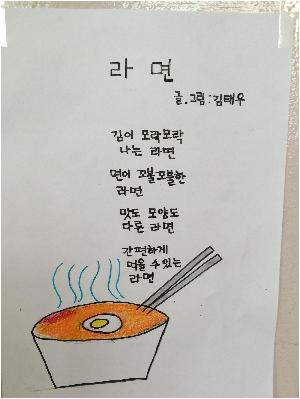 라 면
글.그림:김태우
김이 모락모락
나는 라면
면이 꼬불꼬불한
라면
맛도 모양도
다른 라면
간편하게
먹을 수 있는
라면